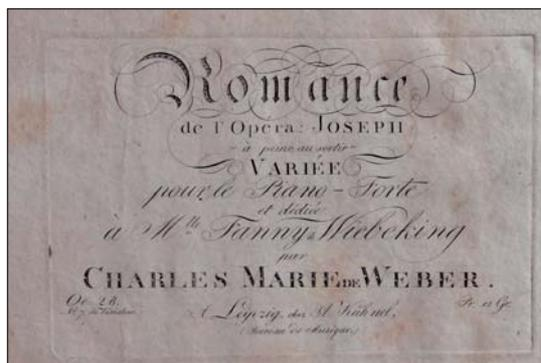 Romance
de l'Opera: JOSEPH
à peine au sortir
VARIÉE
pour le Piano-Forte
et dédiée
à Mlle Fanny Wiebeking
par
CHARLES MARIE DE WEBER.
Oe. 28.
A Leipzig, chez A. Kühnel,
(Bureau de Musique)
Pr. 12 Gr.